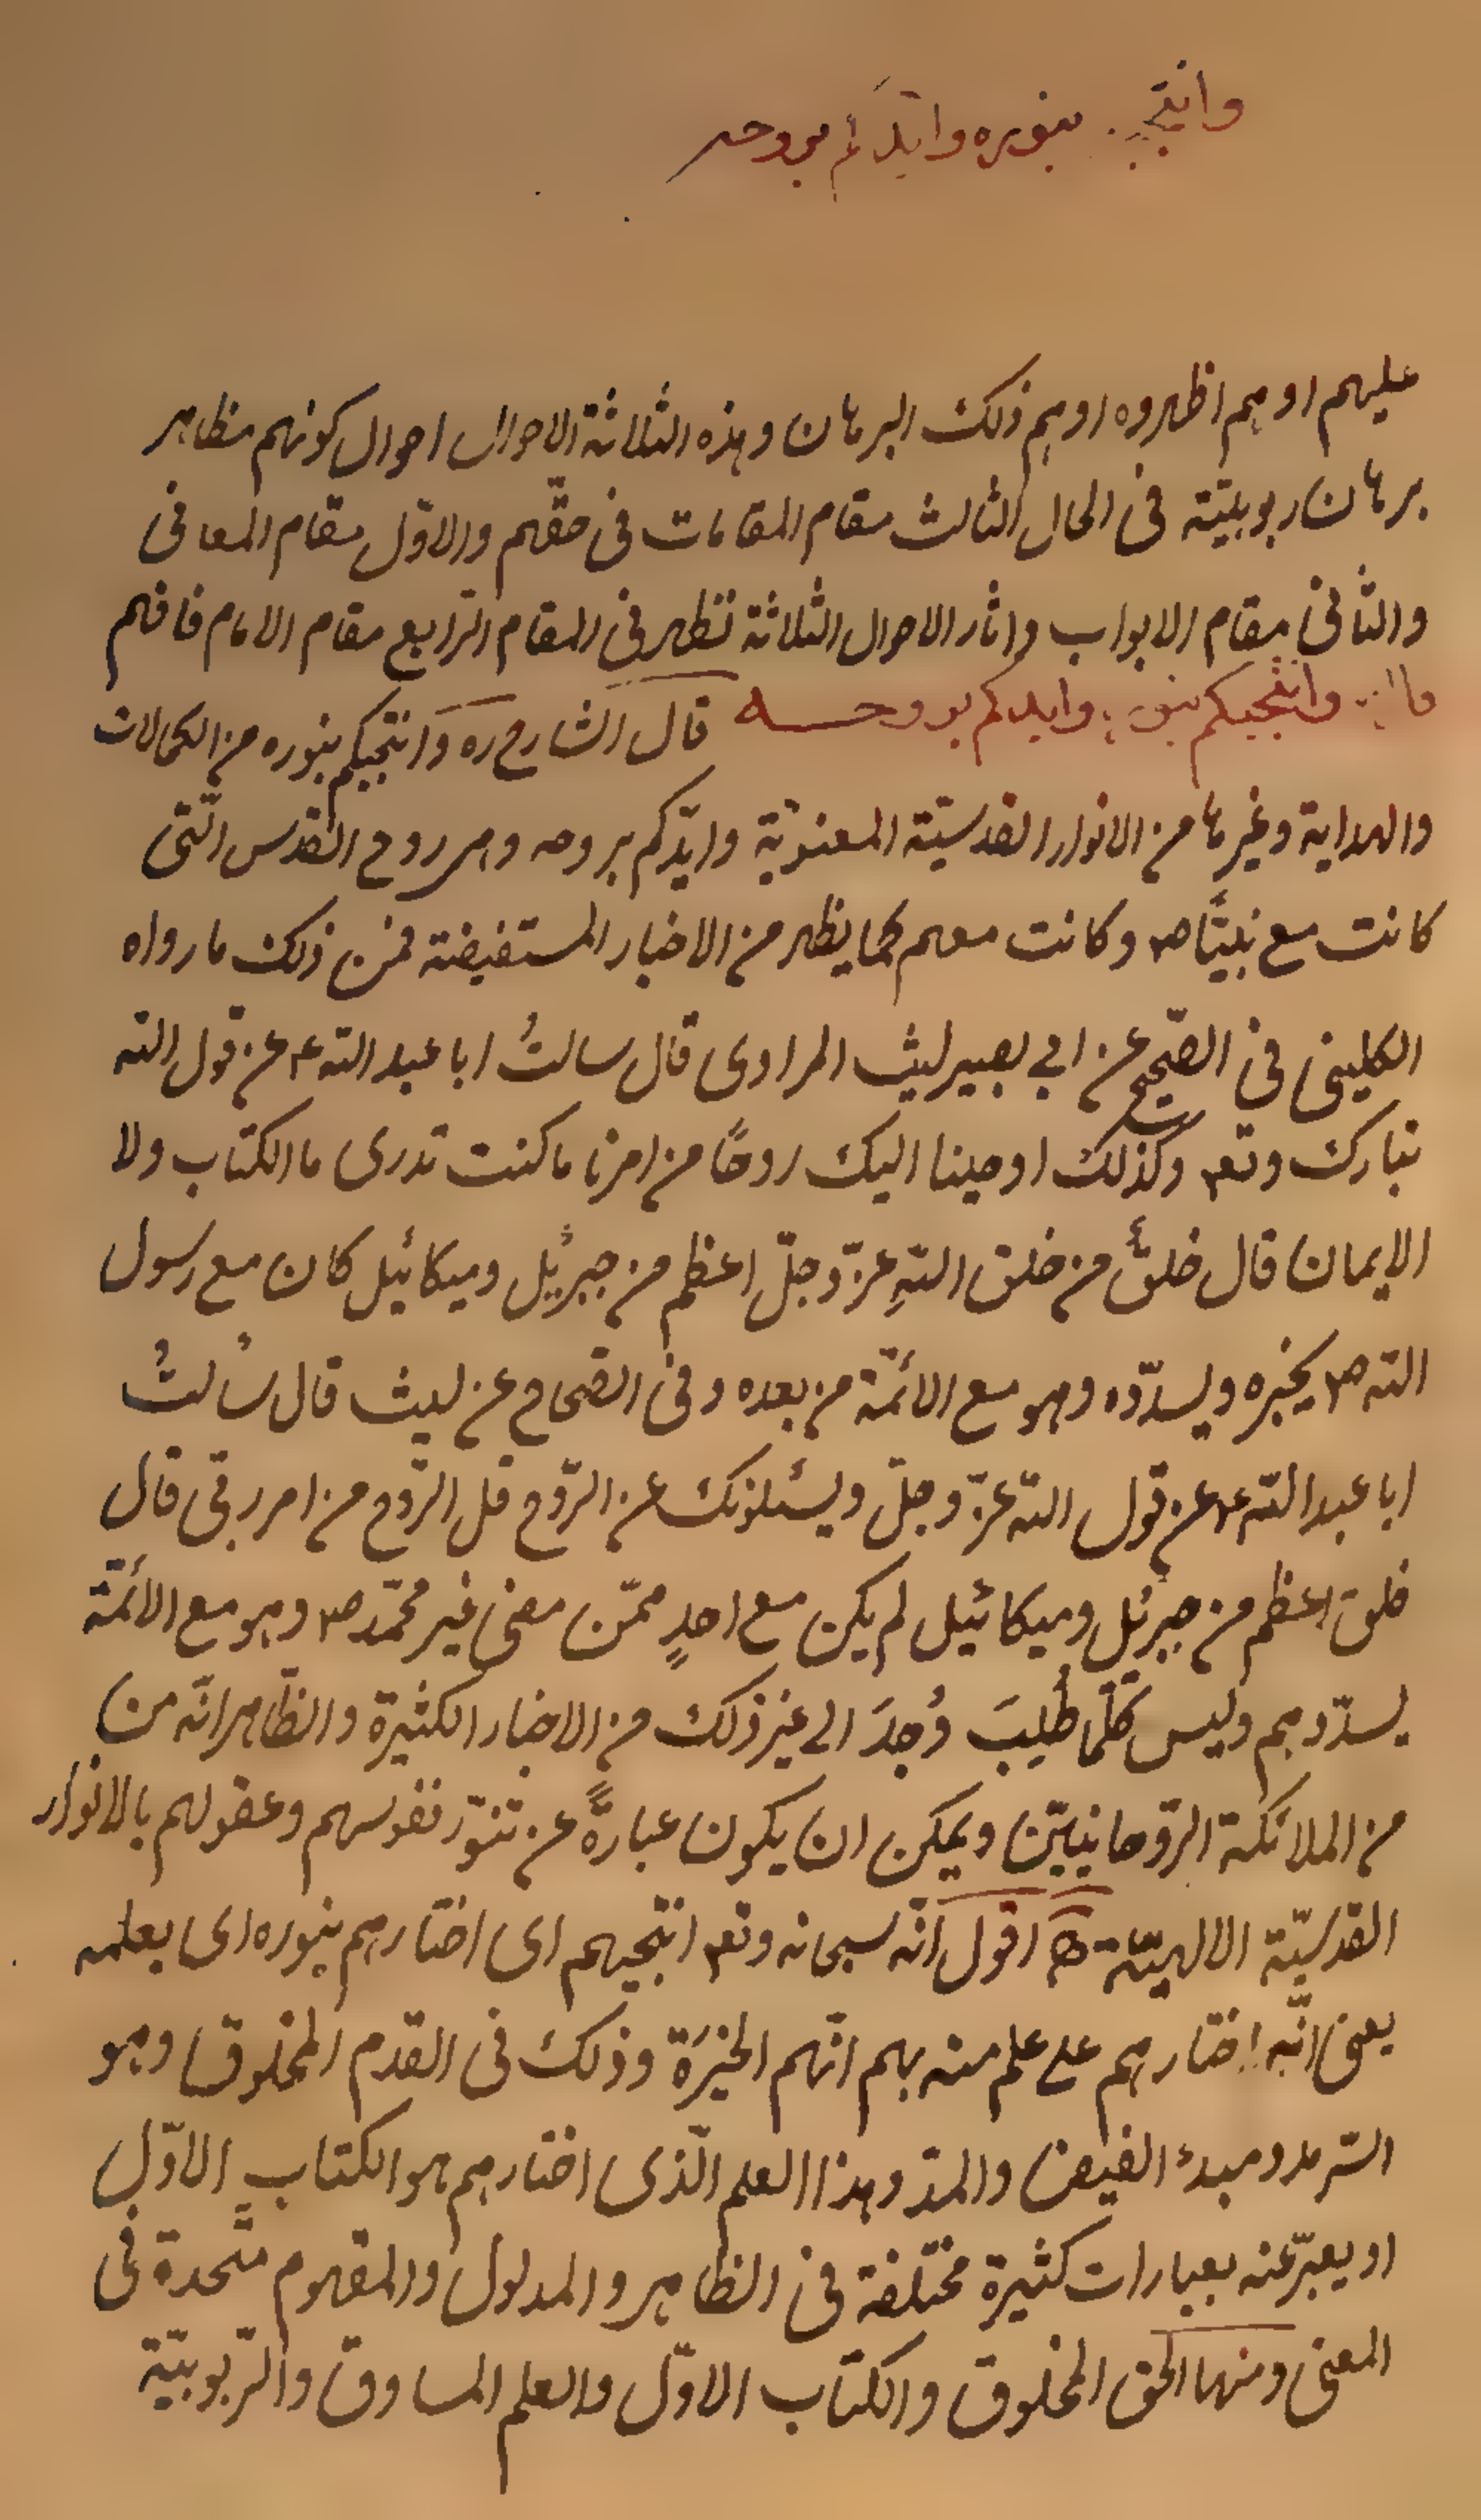 وانتجبكم بنوره وايّدكم بروحه
عليهم او هم اظهروه او هم ذلك البرهان وهذه الثلاثة الاحوال احوال كونهم مظاهر
برهان ربوبيّته فى الحال الثالث مقام المقامات فى حقّهم والاوّل مقام المعانى
والثانى مقام الابواب واثار الاحوال الثلاثة تظهر فى المقام الرّابع مقام الامام فافهم
قال وانتجبكم بنوره وايدكم بروحه قال الشارح ره وانتجبكم بنوره من الكمالات
والهداية وغيرها من الانوار القدسيّة المعنويّة وايّدكم بروحه وهى روح القدس الّتى
كانت مع نبيّنا ص وكانت معهم كما يظهر من الاخبار المستفيضة فمن ذلك ما رواه
الكلينى فى الصّحيح عن ابي بصير ليث المرادى قال سالتُ ابا عبد الله ع عن قول الله
تبارك وتع وكذلك اوحينا اليك روحًا من امرنا ما كنت تدرى ما الكتاب ولا
الايمان قال خلقٌ من خلق اللهِ عزّ وجلّ اعظم من جبرئيل وميكائيل كان مع رسول
الله ص يخبره ويسدّده وهو مع الائمّة من بعده وفى الصّحاح عن ليث قال سُالتُ
ابا عبد الله ع عن قول الله عزّ وجلّ ويسئلونك عن الرّوح قل الرّوح من امر ربّى قال
خلق اعظم من جبرئيل وميكائيل لم يكن مع احدٍ ممّن مضى غير محمّد ص وهو مع الائمّة
يسدّدهم وليس كلّما طُلِبَ وُجِدَ الى غير ذلك من الاخبار الكثيرة والظّاهر انّه من
من الملائكة الرّوحانيّين ويمكن ان يكون عبارةً عن تنوّر نفوسهم وعقولهم بالانوار
القدسيّة الالهيّة اقول انّه سبحانه وتع انتجبهم اى اختارهم بنوره اى بعلمه
يعنى انّه اختارهم على علم منه بهم انّهم الخيَرَة وذلك فى القدم المخلوق وهو
السّرمد ومبدء الفيض والمدّ وهذا العلم الّذى اختارهم هو الكتاب الاوّل
او يعبّر عنه بعبارات كثيرة مختلفة فى الظاهر والمدلول والمفهوم متّحدة فى
المعنى ومنها الحق المخلوق والكتاب الاوّل والعلم المساوق والرّبوبيّة